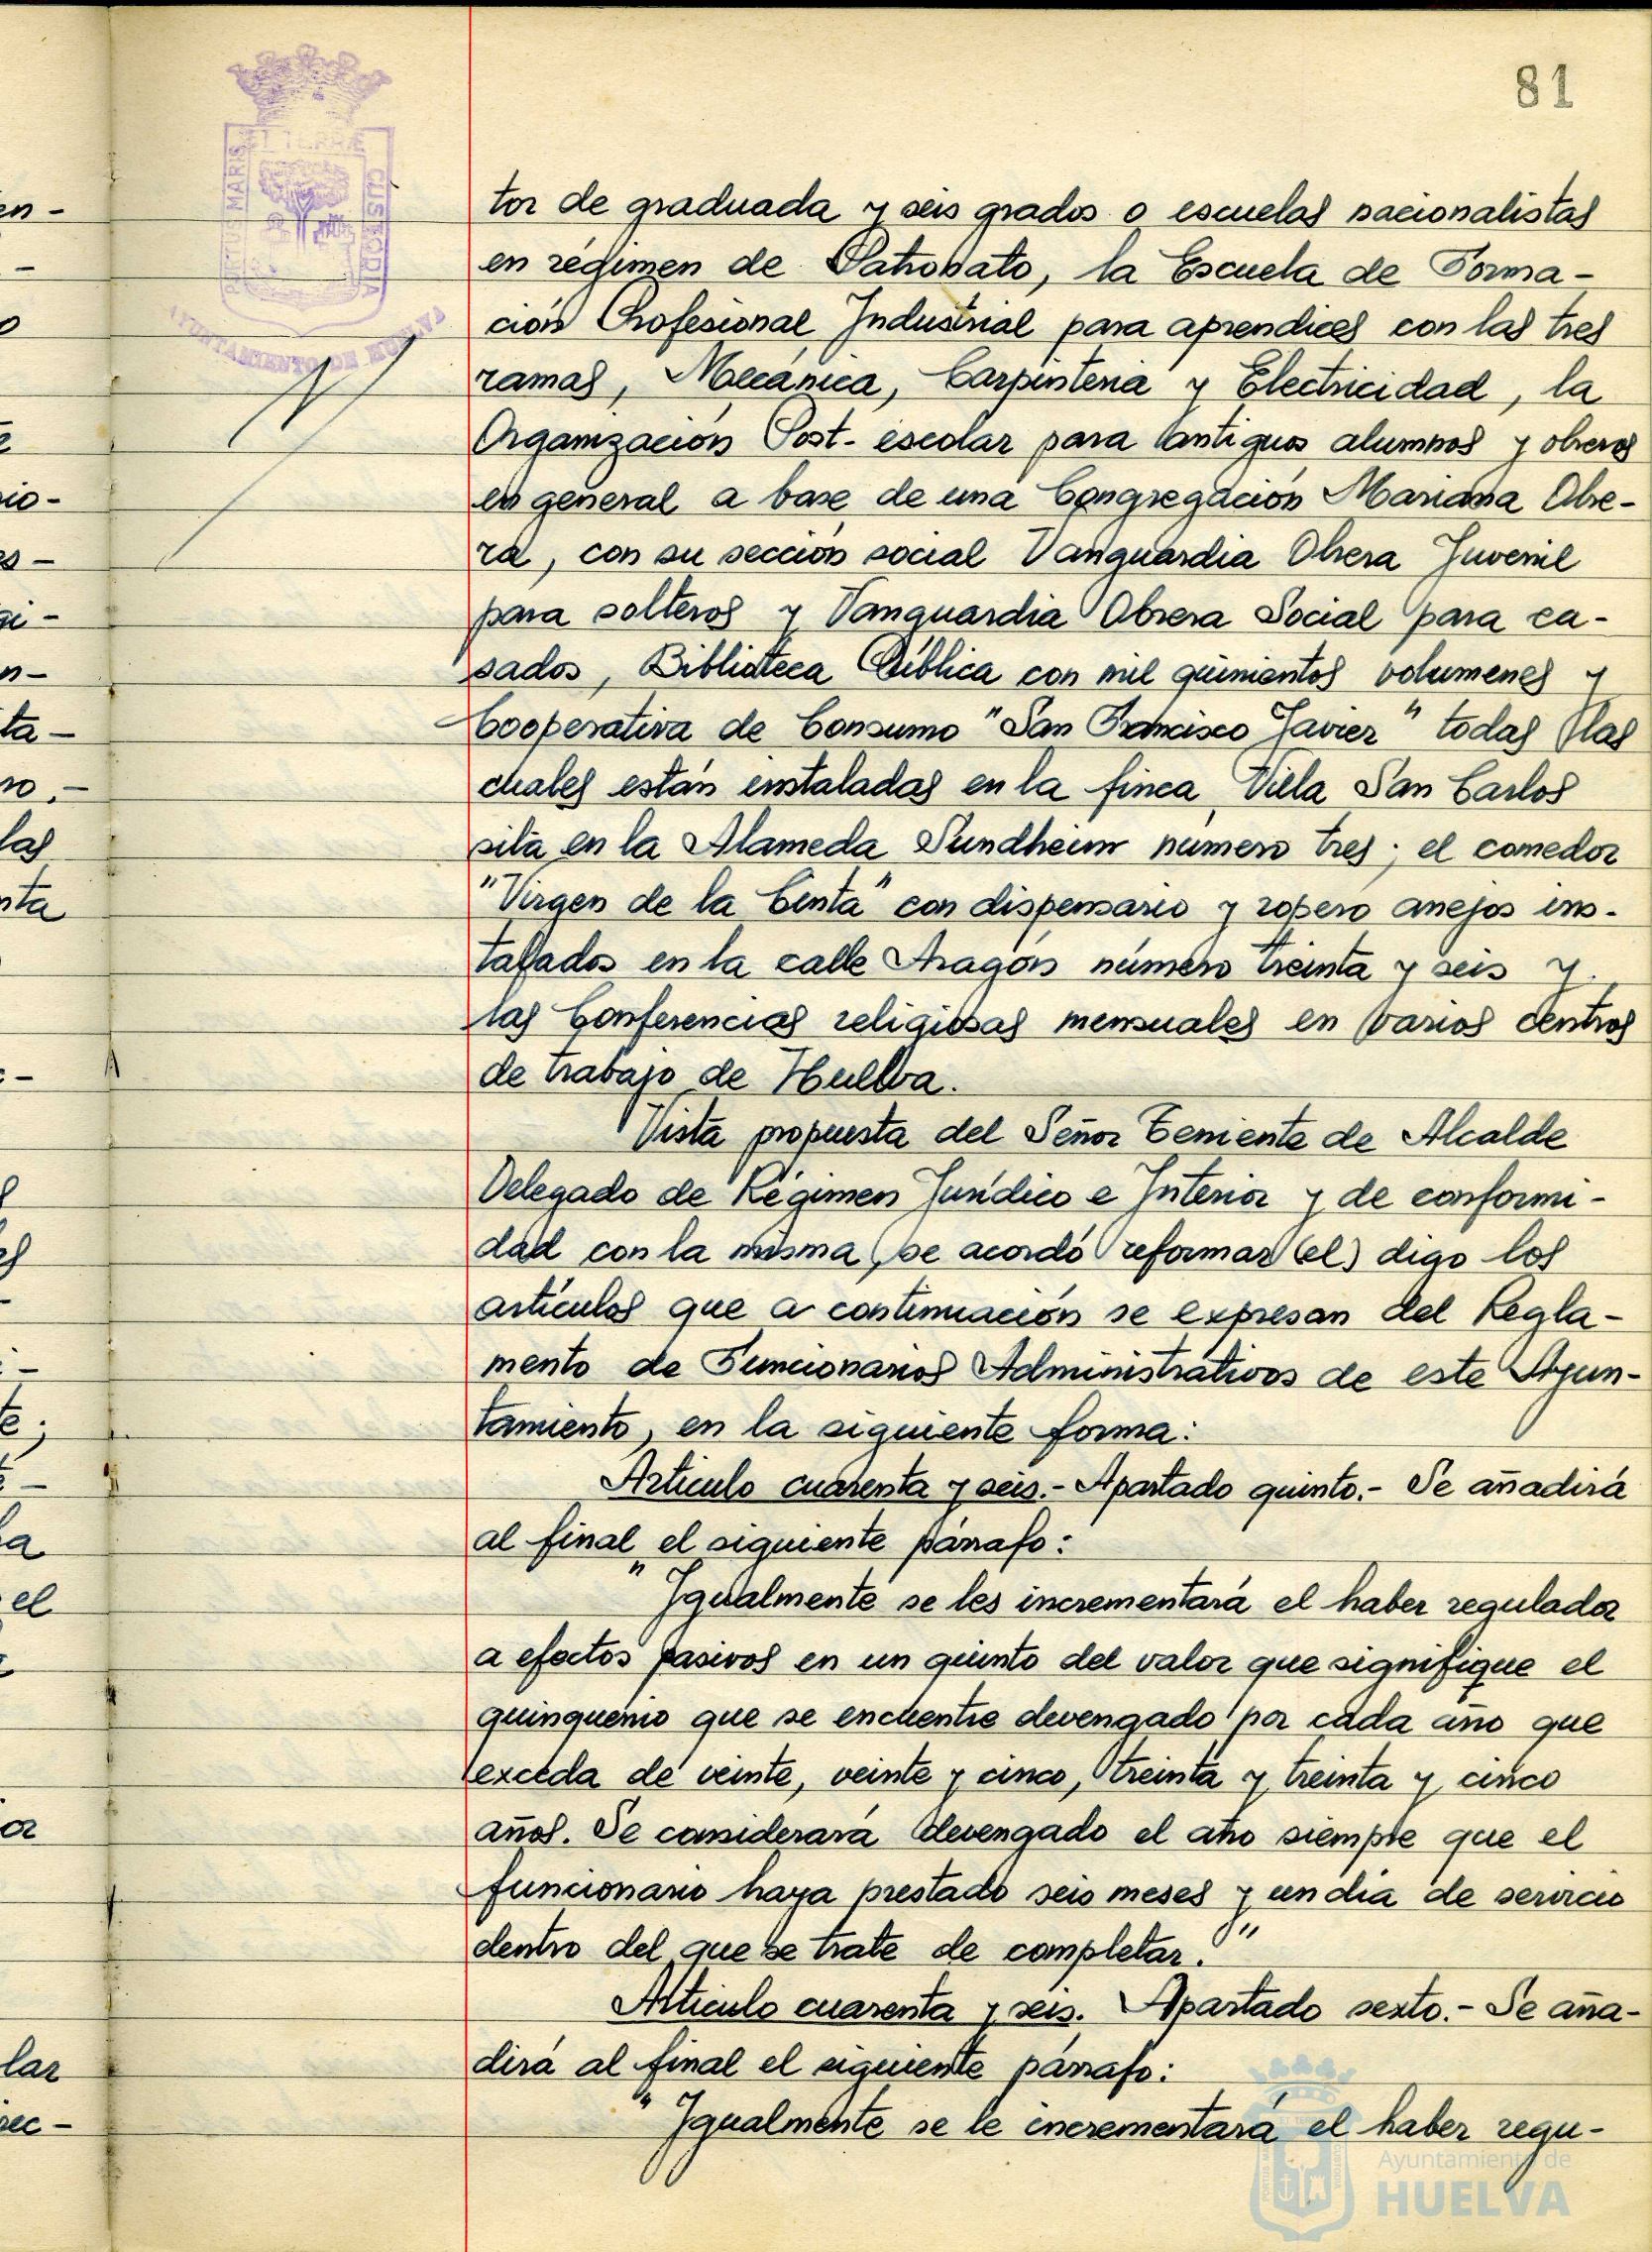 81
PORTUS MARIS ET TERRÆ CUSTODIA
AYUNTAMIENTO DE HUELVA
tor de graduada y seis grados o escuelas nacionalistas
en régimen de Patronato, la Escuela de Forma-
ción Profesional Industrial para aprendices con las tres
ramas, Mecánica, Carpintería y Electricidad, la
Organización Post-escolar para antiguos alumnos y obreros
en general a base de una Congregación Mariana Obre-
ra, con su sección social Vanguardia Obrera Juvenil
para solteros y Vanguardia Obrera Social para ca-
sados, Biblioteca Pública con mil quinientos volumenes y
Cooperativa de Consumo "San Francisco Javier" todas las
cuales están instaladas en la finca Villa San Carlos
sita en la Alameda Sundheim número tres; el comedor
"Virgen de la Cinta" con dispensario y ropero anejos ins-
talados en la calle Aragón número treinta y seis y
las Conferencias religiosas mensuales en varios centros
de trabajo de Huelva.
Vista propuesta del Señor Teniente de Alcalde
Delegado de Régimen Jurídico e Interior y de conformi-
dad con la misma, se acordó reformar (el) digo los
artículos que a continuación se expresan del Regla-
mento de Funcionarios Administrativos de este Ayun-
tamiento, en la siguiente forma:
Articulo cuarenta y seis.- Apartado quinto.- Se añadirá
al final el siguiente párrafo:
"Igualmente se les incrementará el haber regulador
a efectos pasivos en un quinto del valor que signifique el
quinquenio que se encuentre devengado por cada año que
exceda de veinte, veinte y cinco, treinta y treinta y cinco
años. Se considerará devengado el año siempre que el
funcionario haya prestado seis meses y un dia de servicio
dentro del que se trate de completar."
Articulo cuarenta y seis. Apartado sexto.- Se aña-
dirá al final el siguiente párrafo:
"Igualmente se le incrementará el haber regu-
Ayuntamiento de
HUELVA
en-
-
o
io-
s-
gi-
n-
ta-
no.-
las
nta
te;
el
or
lar
rec-